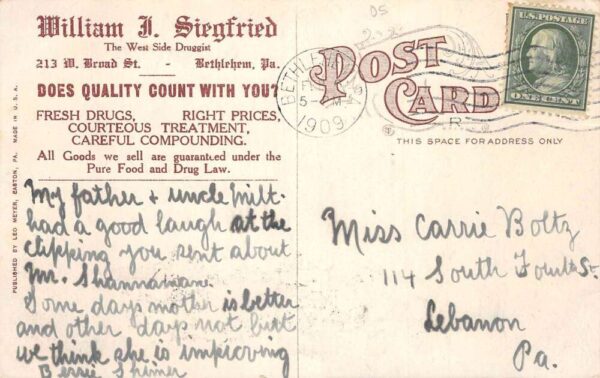 William J. Siegfried
The West Side Druggist
213 W. Broad St. - Bethlehem, Pa.
DOES QUALITY COUNT WITH YOU?
FRESH DRUGS, RIGHT PRICES,
COURTEOUS TREATMENT,
CAREFUL COMPOUNDING.
All Goods we sell are guaranteed under the
Pure Food and Drug Law.
PUBLISHED BY LEO MEYER, EASTON, PA. MADE IN U.S.A.
My father + uncle Milt.
had a good laugh at the
clipping you sent about
Mr. Shannamane.
Some days mother is better
and other days not but
we think she is improving
Bessie Shimer
POST
CARD
THIS SPACE FOR ADDRESS ONLY
BETHLEHEM
1909
U.S.POSTAGE
ONE CENT
Miss Carrie Boltz
114 South Fourth St.
Lebanon
Pa.